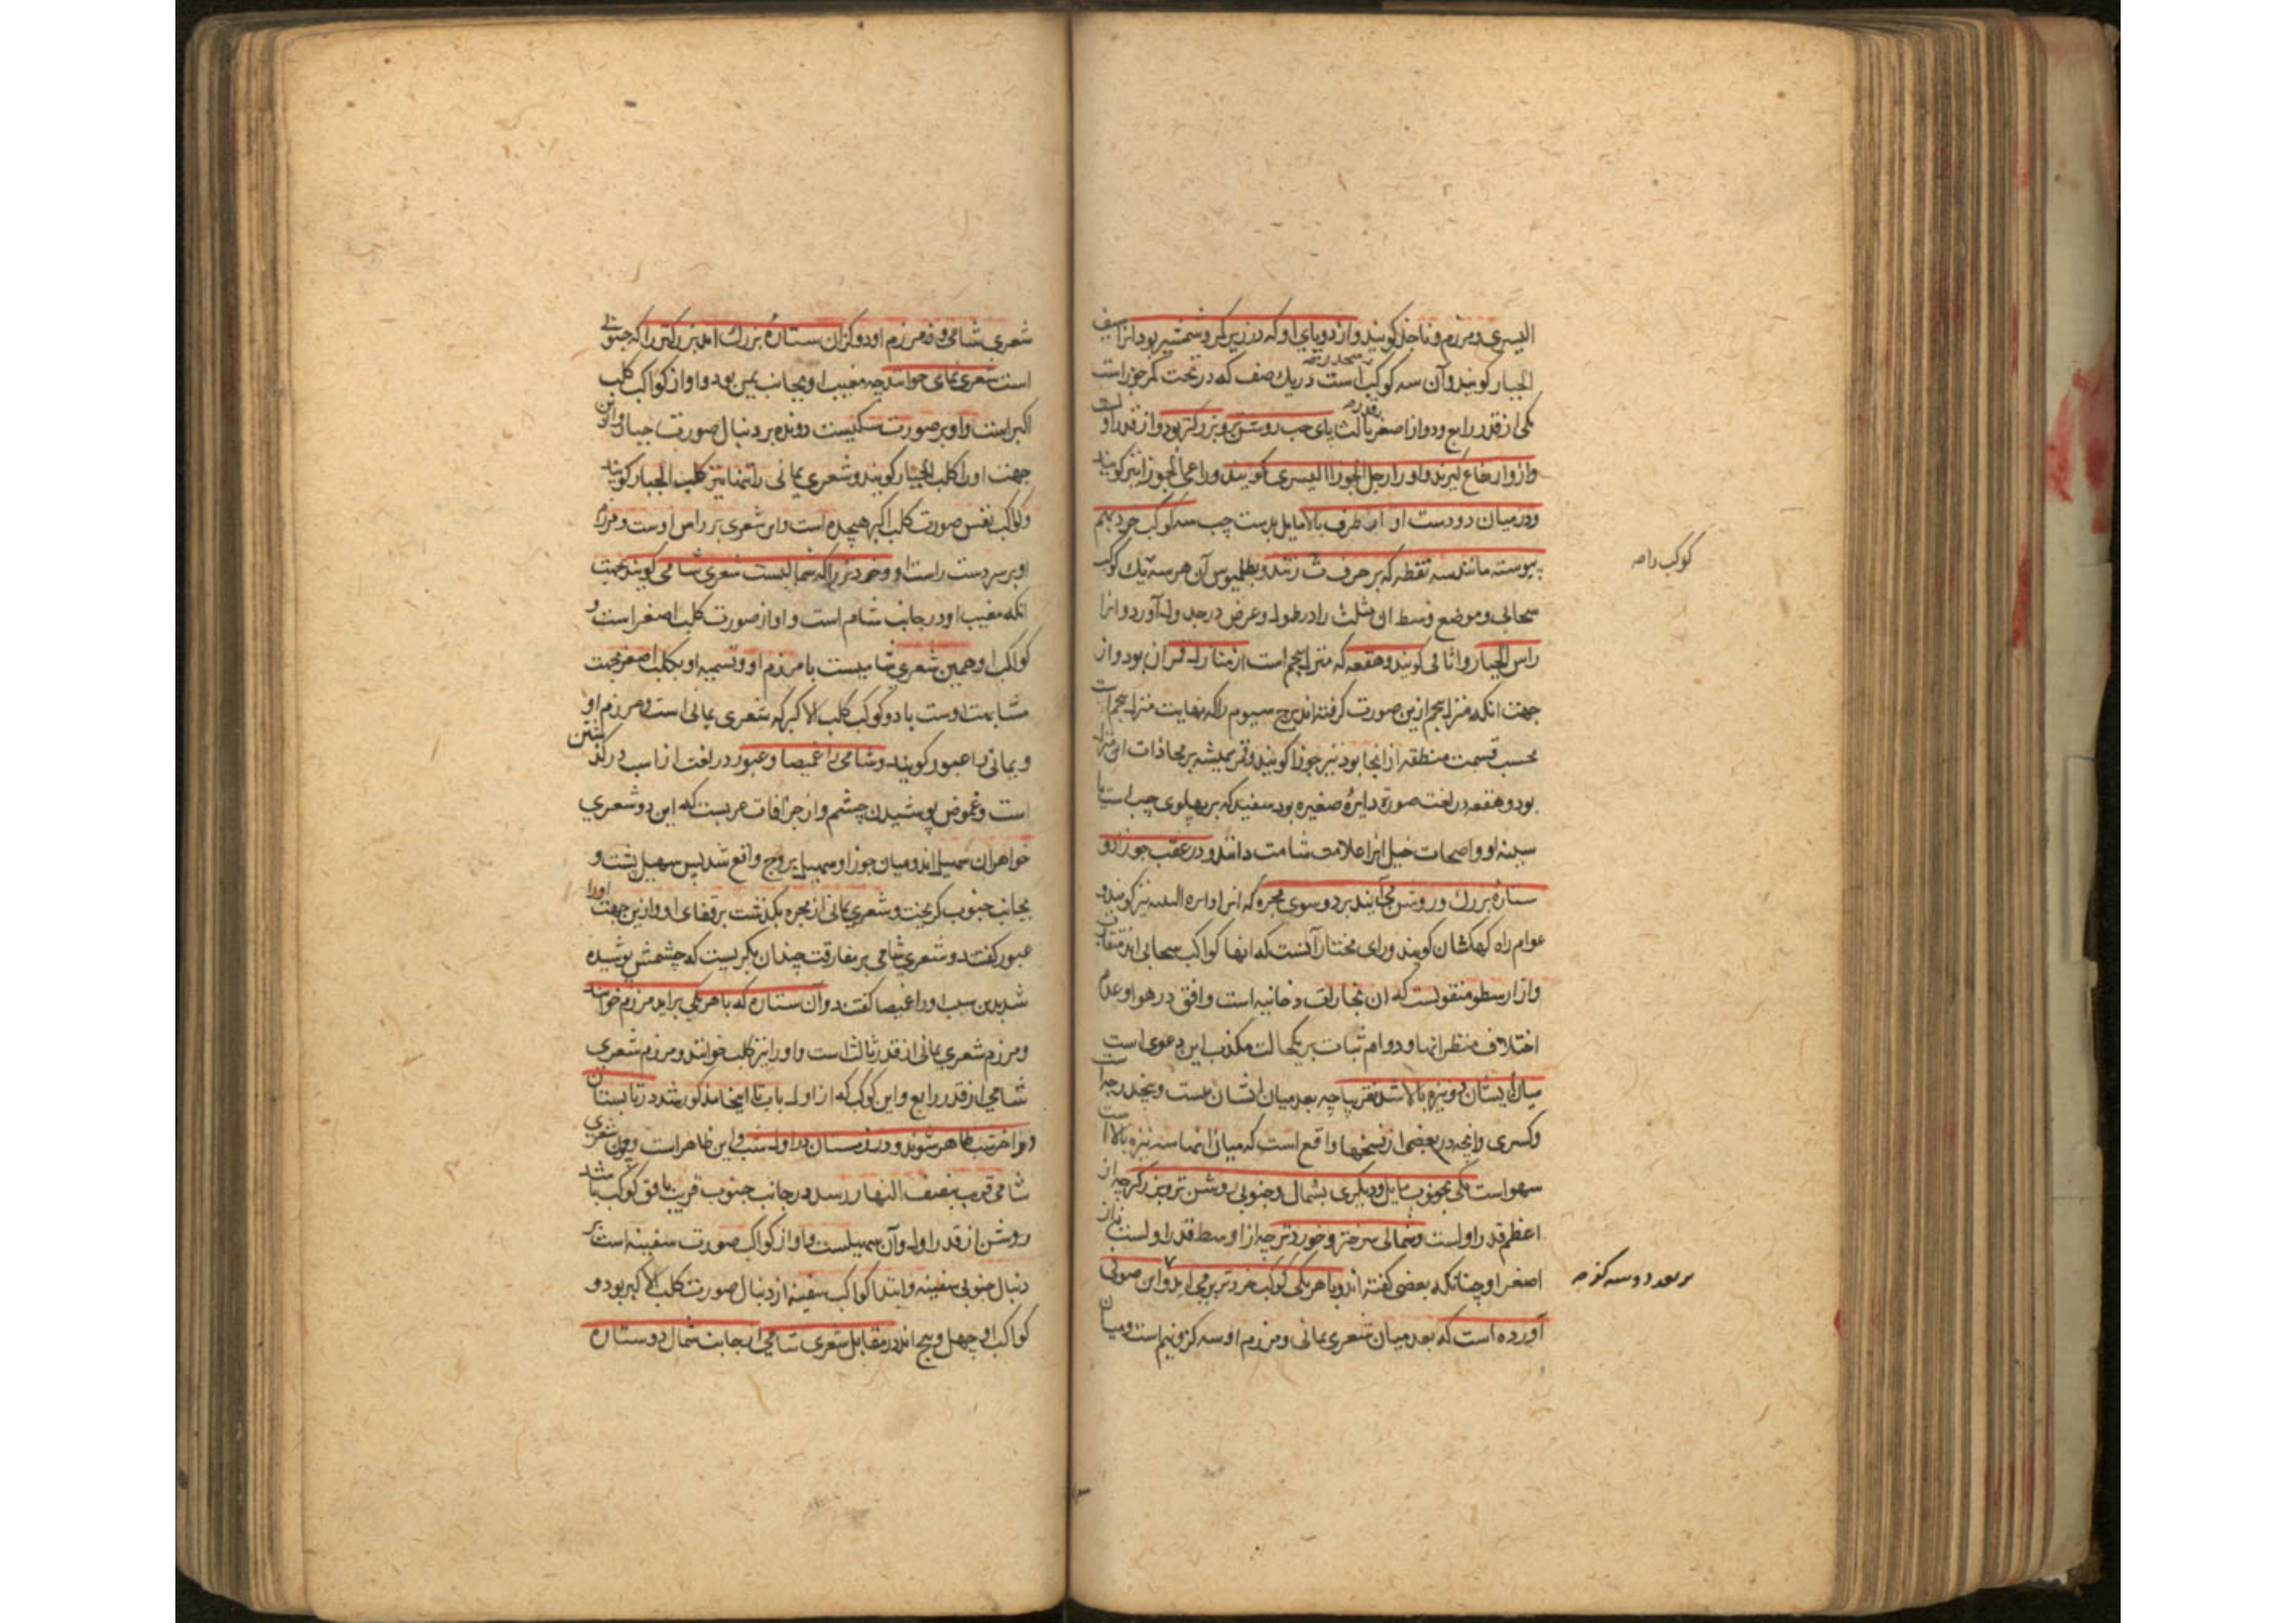 الیسری و مرزم و ناجذ کویند و از دو پای او که در زیر کمر و شمشیر بود آنرا سیف
الجبار کویند و آن سه کوکب است در یک صف که در تحت کمر جوزاست
یکی از قدر رابع و دو از اصغر ثالث پای چپ روشنتر و بزرکتر بود و از قدر اول است
و ازو ارتفاع کیرند و او را رجل الجوزا الیسری کویند و راعی الجوزا نیز کویند
و در میان دو دست او از طرف بالا مایل بدست چپ سه کوکب خرد بهم
پیوسته مانند سه نقطه که بر حرف ث زنند و بطلمیوس آن هر سه یک کوکب
سحابی و موضع وسط آن مثلث را در طول و عرض در جدول آورد و آنرا
راس الجبار و اثافی کویند و هقعه که منزل پنجم است از منازل قمر آن بود و از
جهت آنکه منزل پنجم ازین صورت کرفته اند برج سیوم را که نهایت منزل پنجم است
بحسب قسمت منطقه از انجا بود نیز جوزا کویند و قمر همیشه بر محاذات این منزل
بود و هقعه در لغت صورة دایرهٔ صغیره بود سفید که بر پهلوی چپ اسب یا
سینه او و اصحاب خیل آنرا علامت شامت دانند و در عقب جوزا دو
ستارهٔ بزرك و روشن می آیند بر دو سوی مجره که انرا نیز کویند و
عوام راه کهکشان کویند و رای مختار آنست که آنها کواکب سحابی اند متقارن
و از ارسطو منقولست که آن بخارات دخانیه است واقع در هوا و عدم
اختلاف منظر آنها و دوام ثبات بر یکحالت مکذب این دعوی است
میان ایشان دو نیزه بالا باشد تقریبا چه بعد میان ایشان بیست و پنج درجه است
و کسری و آنچه در بعضی از نسخها واقع است که میان آنها سه نیزه بالا است
سهو است یکی بجنوب مایل و دیکری بشمال و جنوبی روشن تر و بزرکتر چه از
اعظم قدر اولست و شمالی سرختر و خوردتر چه از اوسط قدر اولست یا از
اصغر او چنانکه بعضی کفته اند و با هر یکی کوکب خردتر بر می آید و ابن صوفی
آورده است که بعد میان شعری یمانی و مرزم او سه کز و نیم است و میان
کوکب راصہ
شعری شامی و مرزم او دو کز آن ستارهٔ بزرك اعنی بزرکتر را که جنوبی
است شعری یمانی خوانند چه مغیب او بجانب یمن بود و او از کواکب کلب
اکبر است و او بر صورت سکیست دونده بر دنبال صورت جبار و ازین
جهت او را کلب الجبار کویند و شعری یمانی را تنها نیز کلب الجبار کویند
و کواکب نفس صورت کلب اکبر هیجده است و این شعری بر راس اوست و مرزم
او بر سر دست راست او و خردتر را که شمالیست شعری شامی کویند بجهت
آنکه مغیب او در جانب شام است و او از صورت کلب اصغر است و
کواکب او همین شعری شامیست با مرزم او و تسمیه او بکلب اصغر بجهت
مشابهت اوست با دو کوکب کلب الاکبر که شعری یمانی است و مرزم او
و یمانی را عبور کویند و شامی را غمیصا و عبور در لغت از آب در کذشتن
است و غموض پوشیدن چشم و از خرافات عربست که این دو شعری
خواهران سهیل اند و میان جوزا و سهیل تزوج واقع شد پس سهیل پشت و
بجانب جنوب کریخت و شعری یمانی از مجره بکذشت بر قفای او و ازین جهت او را
عبور کفتند و شعری شامی بر مفارقت چندان بکریست که چشمش پوشیده
شد بدین سبب او را غمیصا کفتند و آن ستاره که با هر یکی بر آید مرزم خوانند
و مرزم شعری یمانی از قدر ثالث است و او را نیز کلب خوانند و مرزم شعری
شامی از قدر رابع و این کوکب که از اول باب تا اینجا مذکور شد در تابستان
در آخر شب ظاهر شوند و در زمستان در اول شب و این ظاهر است و چون شعری
شامی قریب بنصف النهار رسد در جانب جنوب قریب بافق کوکبی باشد
روشن از قدر اول و آن سهیلست و او از کواکب صورت سفینه است بر
دنبال جنوبی سفینه و ابتدا کواکب سفینه از دنبال صورت کلب الاکبر بود و
کواکب او چهل و پنج اند در مقابل شعری شامی از جانب شمال دو ستاره